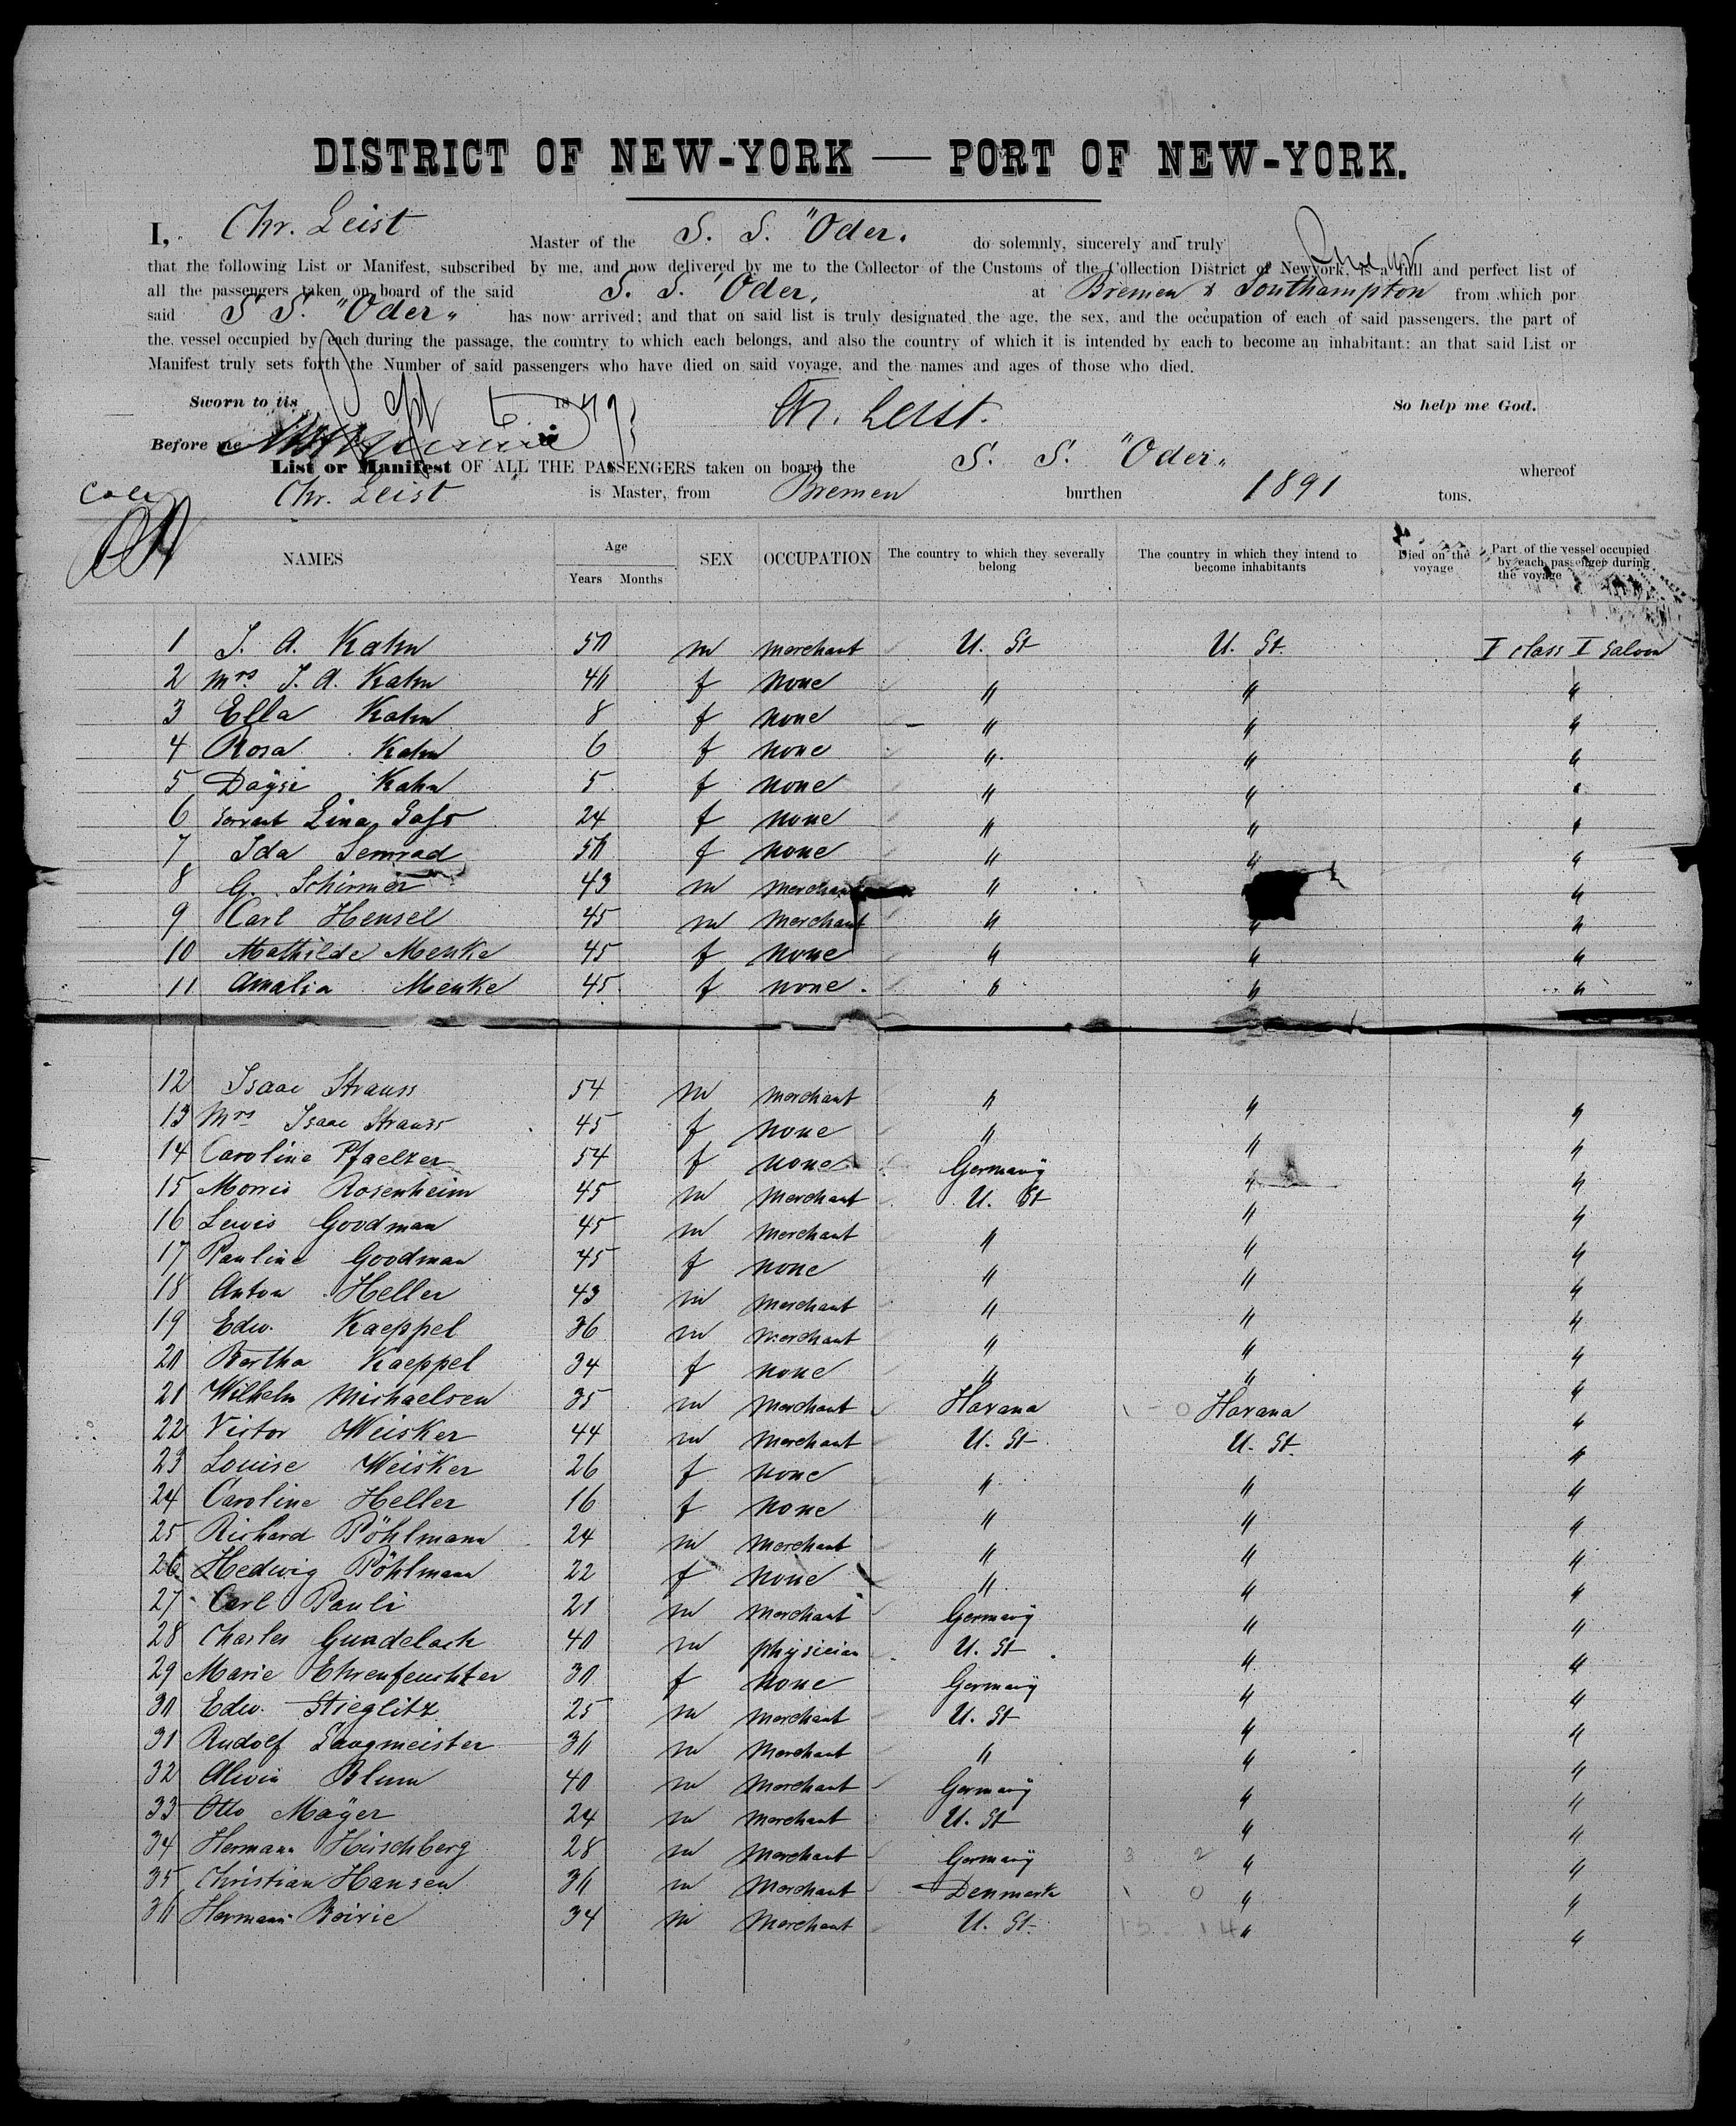 DISTRICT OF NEW-YORK — PORT OF NEW-YORK.
I, Chr. Leist Master of the S. S. "Oder. do solemnly, sincerely and truly swear
that the following List or Manifest, subscribed by me, and now delivered by me to the Collector of the Customs of the Collection District of Newyork, is a full and perfect list of
all the passengers taken on board of the said S. S. "Oder, at Bremen & Southampton from which por
said S S. "Oder" has now arrived; and that on said list is truly designated the age, the sex, and the occupation of each of said passengers, the part of
the vessel occupied by each during the passage, the country to which each belongs, and also the country of which it is intended by each to become an inhabitant: an that said List or
Manifest truly sets forth the Number of said passengers who have died on said voyage, and the names and ages of those who died.
Sworn to tis Sept 6 1879 Chr. Leist. So help me God.
Before me
List or Manifest OF ALL THE PASSENGERS taken on board the S. S. "Oder" whereof
Chr. Leist is Master, from Bremen burthen 1891 tons.
NAMES Age Years Months SEX OCCUPATION The country to which they severally belong The country in which they intend to become inhabitants Died on the voyage Part of the vessel occupied by each passenger during the voyage
1 J. A. Kahn 50 m merchant U. St U. St. I class I Saloon
2 Mrs J. A. Kahn 40 f none " " "
3 Ella Kahn 8 f none " " "
4 Rosa Kahn 6 f none " " "
5 Daÿsi Kahn 5 f none " " "
6 Servant Lina 24 f none " " "
7 Ida Semrad 50 f none " " "
8 G. Schirmer 43 m merchant " "
9 Carl Hensel 45 m merchant " " "
10 Mathilde Menke 45 f none " " "
11 Amalia Menke 45 f none " " "
12 Isaac Strauss 54 m merchant " " "
13 Mrs Isaac Strauss 45 f none " " "
14 Caroline Pfaelzer 54 f none Germanÿ " "
15 Morris Rosenheim 45 m merchant U. St " "
16 Lewis Goodman 45 m merchant " " "
17 Pauline Goodman 45 f none " " "
18 Anton Heller 43 m merchant " " "
19 Edw. Kaeppel 36 m merchant " " "
20 Bertha Kaeppel 34 f none " " "
21 Wilhelm Michaelsen 35 m merchant Havana Havana "
22 Victor Weisker 44 m merchant U. St U. St. "
23 Louise Weisker 26 f none " " "
24 Caroline Heller 16 f none " " "
25 Richard Pöhlmann 24 m merchant " " "
26 Hedwig Pöhlmann 22 f none " " "
27 Carl Pauli 21 m merchant Germanÿ " "
28 Charles Gundelach 40 m physician U. St " "
29 Marie Ehrenfeuchter 30 f none Germanÿ " "
30 Edw. Stieglitz 25 m merchant U. St " "
31 Rudolf Langmeister 30 m merchant " " "
32 Alwin Blum 40 m merchant Germanÿ " "
33 Otto Maÿer 24 m merchant U. St " "
34 Hermann Hirschberg 28 m merchant Germanÿ " "
35 Christian Hansen 30 m merchant Denmark " "
36 Hermann 34 m merchant U. St. " "